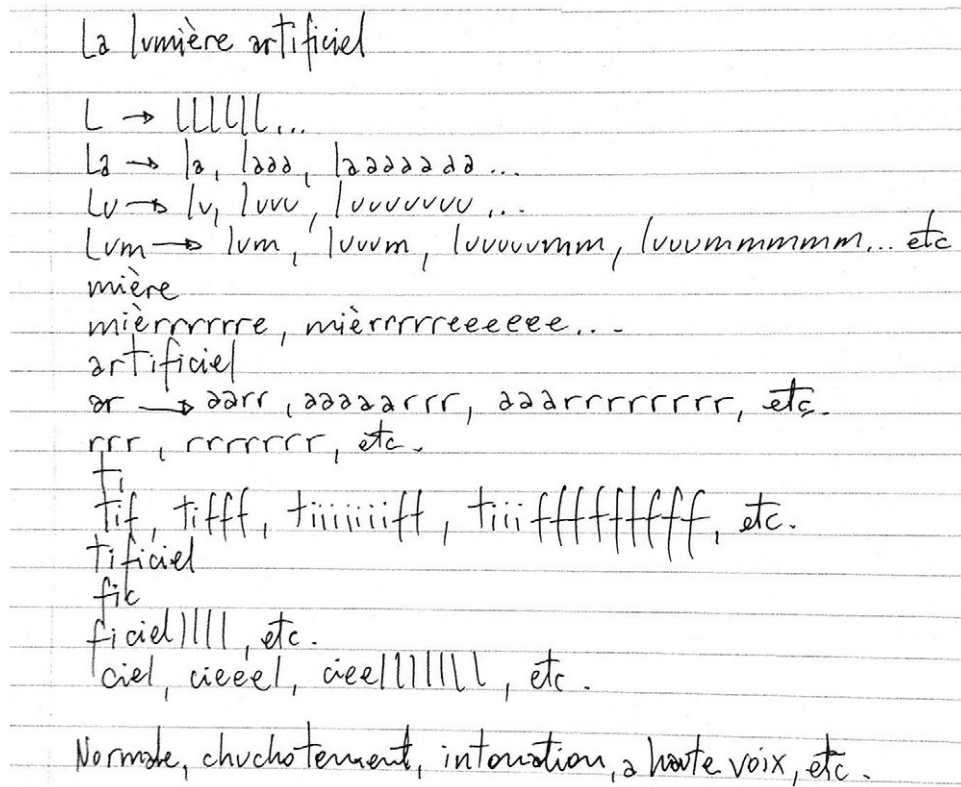 La lumière artificiel
L → LLLLLL...
La → la, laaa, laaaaaaa...
Lu → lu, luuu, luuuuuuu...
Lum → lum, luuum, luuuuumm, luuummmmm... etc
mière
mièrrrrrre, mièrrrrreeeeee...
artificiel
ar → aarr, aaaaarrr, aaarrrrrrrrr, etc.
rrr, rrrrrrr, etc.
ti
tif, tifff, tiiiiiiiff, tiiifffffffff, etc.
tificiel
fic
ficiellll, etc.
ciel, cieeel, cieelllllll, etc.
Normale, chuchotement, intonation, a haute voix, etc.